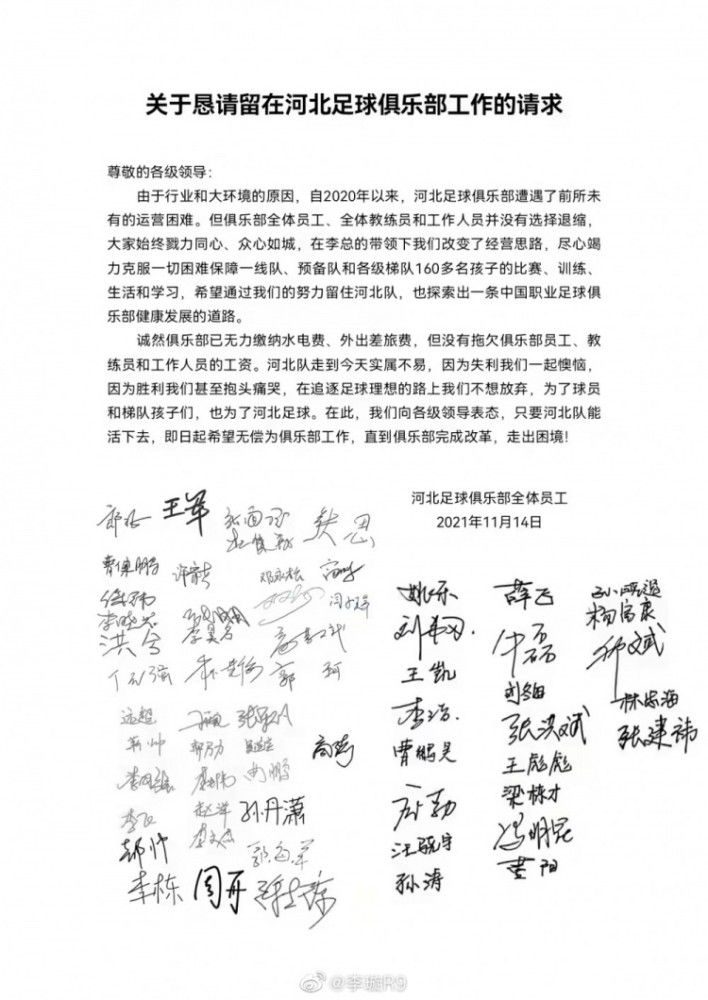 关于恳请留在河北足球俱乐部工作的请求
尊敬的各级领导：
由于行业和大环境的原因，自2020年以来，河北足球俱乐部遭遇了前所未
有的运营困难。但俱乐部全体员工、全体教练员和工作人员并没有选择退缩，
大家始终戮力同心、众心如城，在李总的带领下我们改变了经营思路，尽心竭
力克服一切困难保障一线队、预备队和各级梯队160多名孩子的比赛、训练、
生活和学习，希望通过我们的努力留住河北队，也探索出一条中国职业足球俱
乐部健康发展的道路。
诚然俱乐部已无力缴纳水电费、外出差旅费，但没有拖欠俱乐部员工、教
练员和工作人员的工资。河北队走到今天实属不易，因为失利我们一起懊恼，
因为胜利我们甚至抱头痛哭，在追逐足球理想的路上我们不想放弃，为了球员
和梯队孩子们，也为了河北足球。在此，我们向各级领导表态，只要河北队能
活下去，即日起希望无偿为俱乐部工作，直到俱乐部完成改革，走出困境！
河北足球俱乐部全体员工
2021年11月14日
王军
洪兮
郭珂
孙丹潇
李栋 周开
姚乐
王凯
李浩
曹鹏昊
汪骁宇
孙涛
薛飞
牛磊
张洪斌
王彪彪
梁栋才
冯明昆
曹阳
杨富康
林忠海
张建祎
@李璇R9